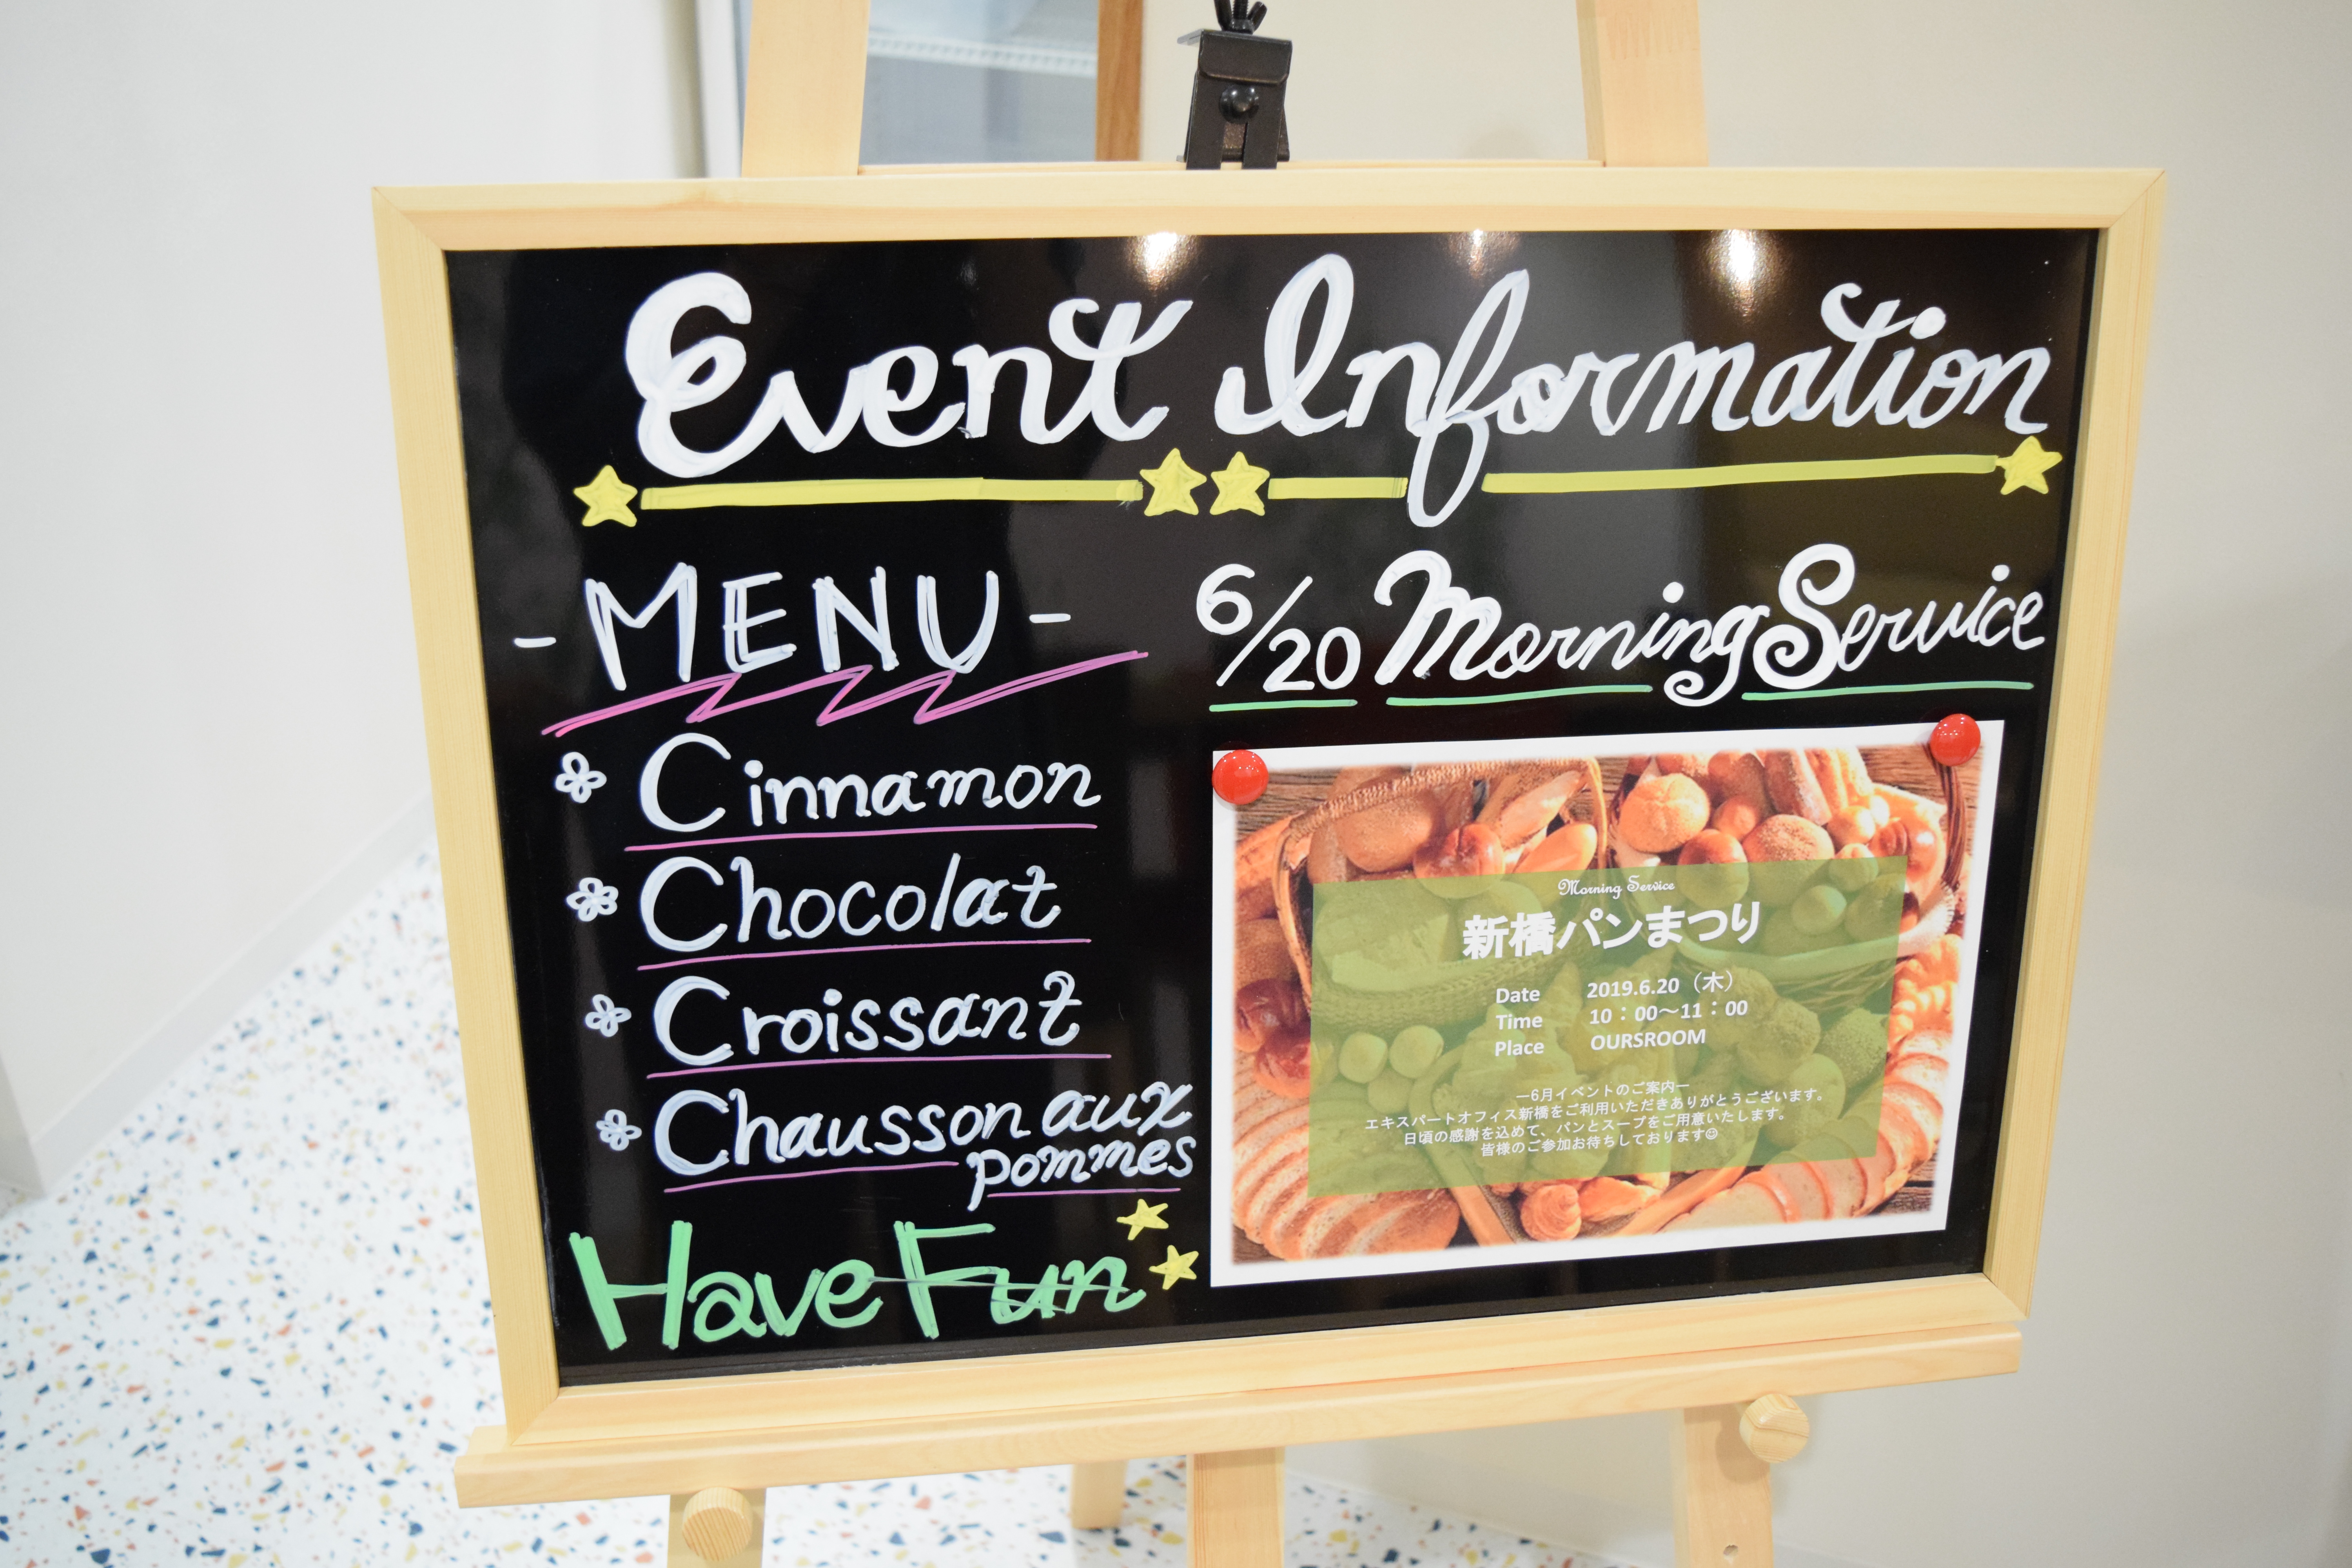 Event Information
- MENU -
Cinnamon
Chocolat
Croissant
Chausson aux
pommes
Have Fun
6/20 Morning Service
Morning Service
新橋パンまつり
Date 2019.6.20（木）
Time 10：00～11：00
Place OURSROOM
―6月イベントのご案内―
エキスパートオフィス新橋をご利用いただきありがとうございます。
日頃の感謝を込めて、パンとスープをご用意いたします。
皆様のご参加お待ちしております☺